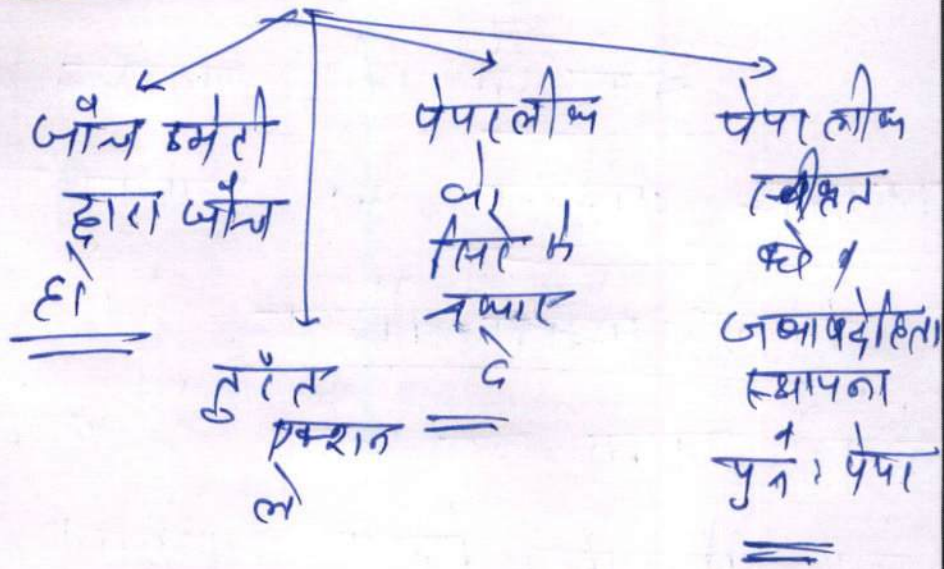 जाँच कमेटी
द्वारा जाँच
हो
तुरंत
एक्शन
ले
पेपर लीक
को
सिरे से
नकार
दे
पेपर लीक
स्वीकार
करे व
जवाबदेहिता
स्थापना
व
पुनः पेपर